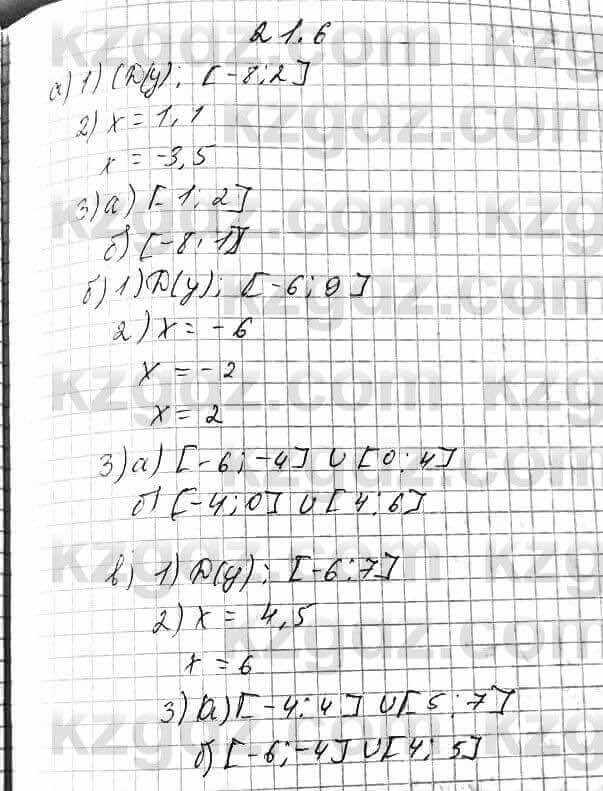 21.6
а) 1) (D(y); [-8;2]
2) x = 1,1
x = -3,5
3) а) [-1; 2]
б) [-8; 1]
б) 1) D(y); [-6; 9]
2) x = -6
x = -2
x = 2
3) а) [-6; -4] ∪ [0; 4]
б) [-4; 0] ∪ [4; 6]
в) 1) D(y); [-6; 7]
2) x = 4,5
x = 6
3) а) [-4; 4] ∪ [5; 7]
б) [-6; -4] ∪ [4; 5]
kzgdz.com